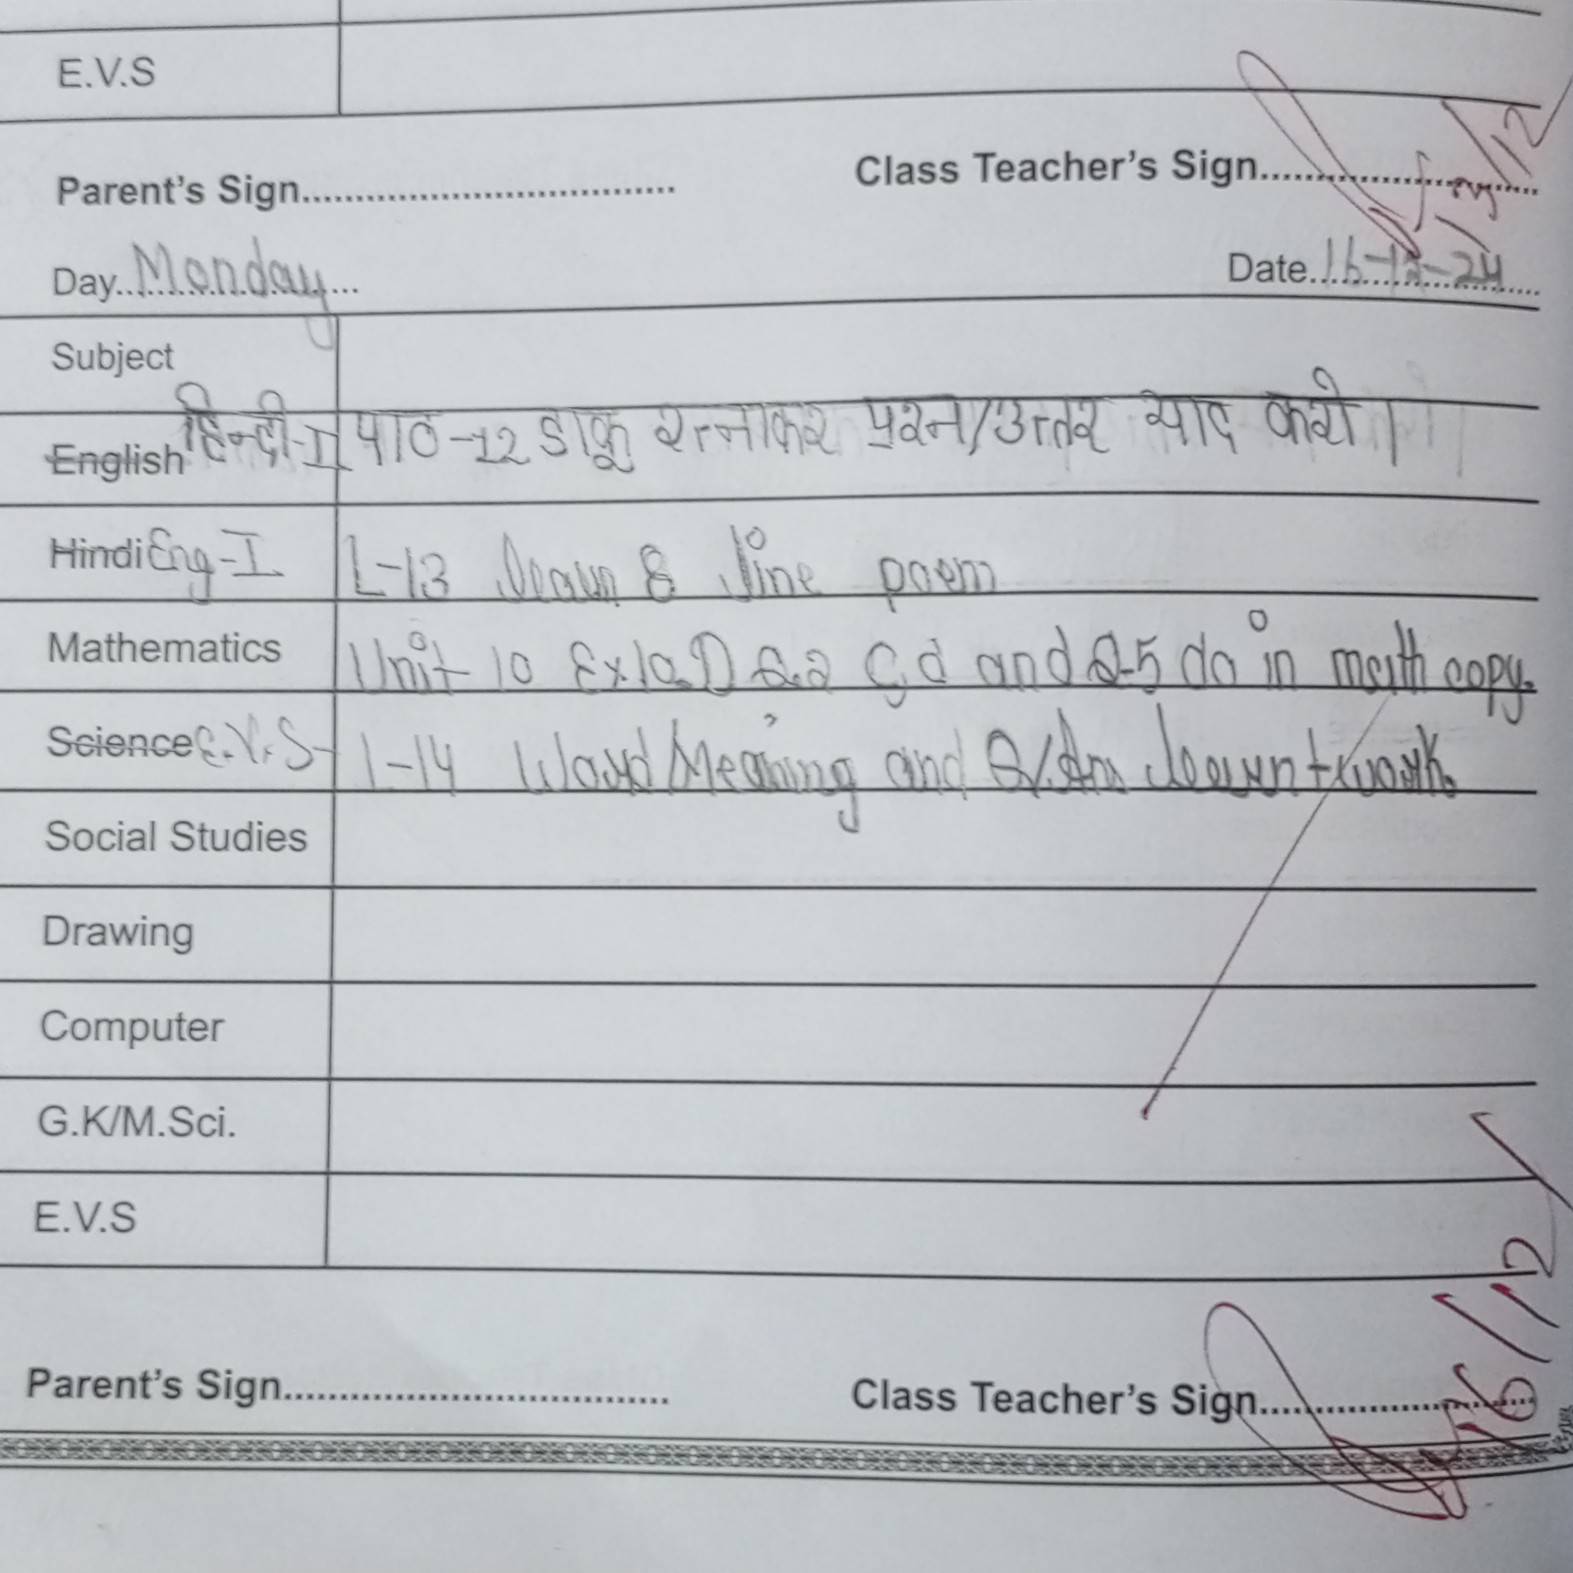 E.V.S
Parent's Sign.................................. Class Teacher's Sign.......................... 13/12
Day..Monday... Date.16-12-24
Subject
English हिन्दी-I पाठ-12 डाकू रत्नाकर प्रश्न/उत्तर याद करो।
Hindi Eng-I L-13 learn 8 line poem
Mathematics Unit 10 Ex 10.D Q.2 C, d and Q-5 do in math copy.
Science E.V.S- L-14 Word Meaning and Q/Ans learn + work.
Social Studies
Drawing
Computer
G.K/M.Sci.
E.V.S
Parent's Sign.................................. Class Teacher's Sign.......................... 16/12